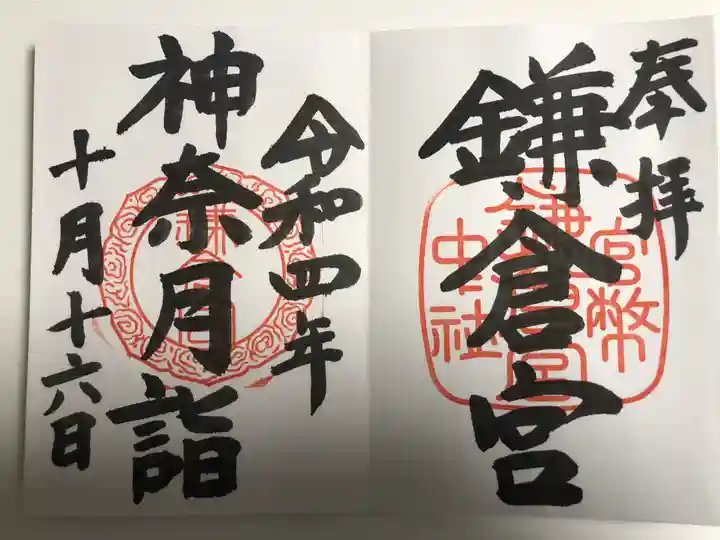 奉拝
鎌倉宮
官幣
鎌倉宮
中社
令和四年
神奈月詣
鎌倉宮
十月十六日